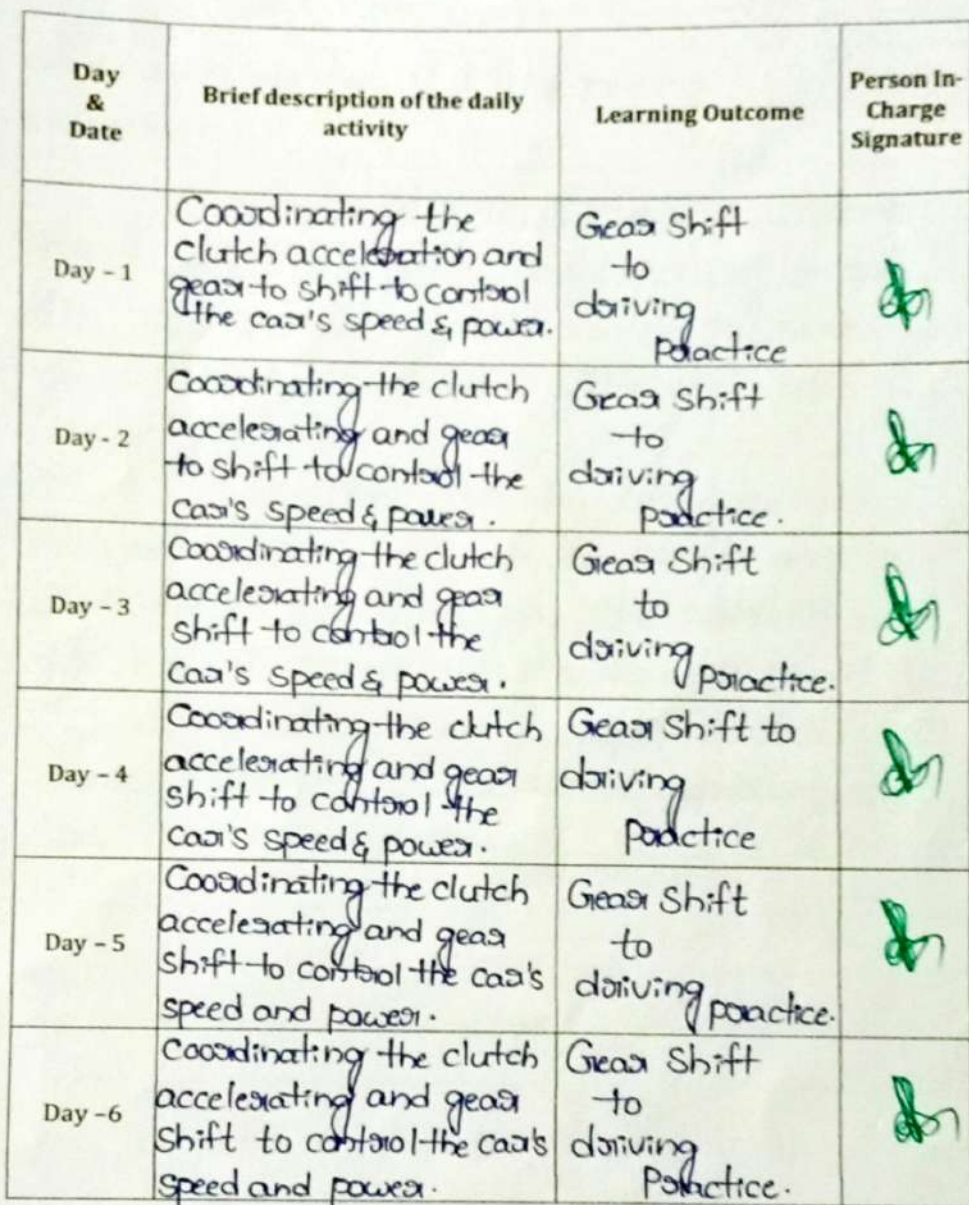 Day
&
Date
Brief description of the daily
activity
Learning Outcome
Person In-
Charge
Signature
Day - 1
Coordinating the
clutch acceleration and
gear to shift to control
the car's speed & power.
Gear Shift
to
driving
Practice
Day - 2
Coordinating the clutch
accelerating and gear
to shift to control the
car's speed & power.
Gear Shift
to
driving
practice.
Day - 3
Coordinating the clutch
accelerating and gear
shift to control the
car's speed & power.
Gear Shift
to
driving
practice.
Day - 4
Coordinating the clutch
accelerating and gear
shift to control the
car's speed & power.
Gear Shift to
driving
practice
Day - 5
Coordinating the clutch
accelerating and gear
shift to control the car's
speed and power.
Gear Shift
to
driving practice.
Day -6
Coordinating the clutch
accelerating and gear
shift to control the car's
speed and power.
Gear Shift
to
driving
Practice.